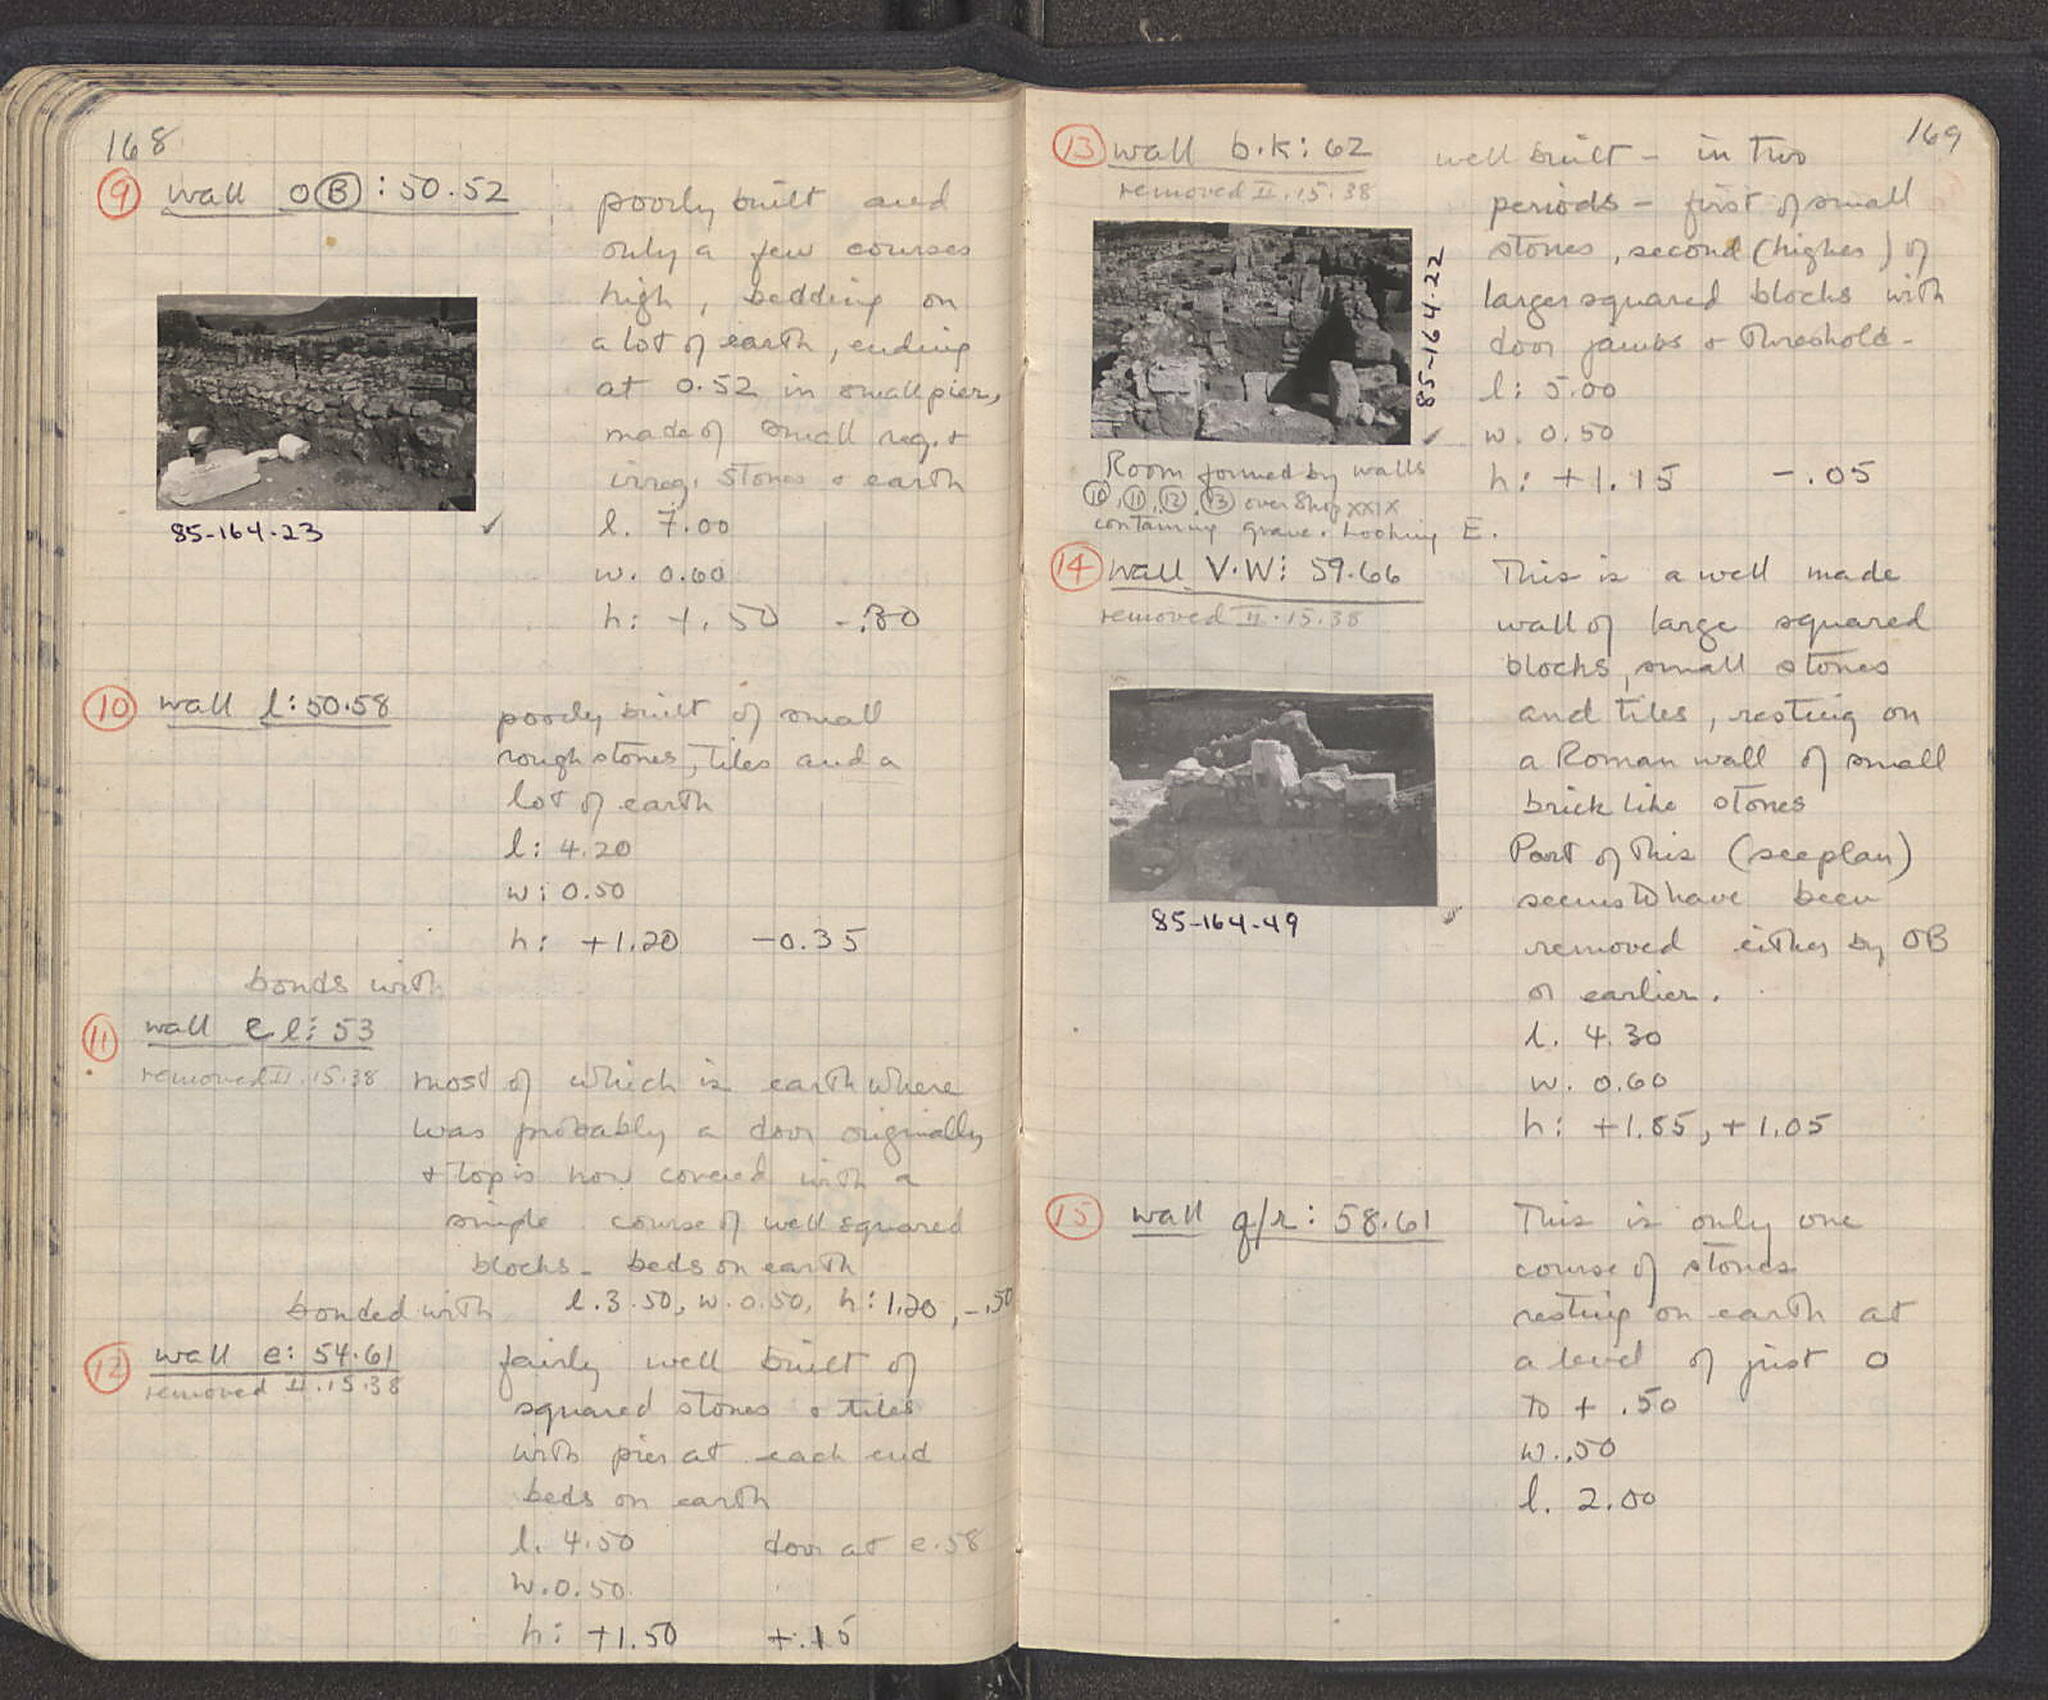 168
9 wall O B : 50.52
poorly built and
only a few courses
high, bedding on
a lot of earth, ending
at 0.52 in small pier,
made of small reg. +
irreg. stones + earth
l. 7.00
w. 0.60
h: +.50 -.80
85-164-23 ✓
10 wall l:50.58
poorly built of small
rough stones, tiles and a
lot of earth
l: 4.20
w: 0.50
h: +1.20 -0.35
bonds with
11 wall e l: 53
removed II.15.38
most of which is earth where
was probably a door originally
+ top is now covered with a
single course of well squared
blocks - beds on earth
l. 3.50, w. 0.50, h: 1.20, -.50
bonded with
12 wall e: 54.61
removed II.15.38
fairly well built of
squared stones + tiles
with pier at each end
beds on earth
l. 4.50 door at e.58
w. 0.50
h: +1.50 +.15
169
13 wall b.k: 62
removed II.15.38
well built - in two
periods - first of small
stones, second (higher) of
larger squared blocks with
door jambs + threshold -
l: 5.00
w. 0.50
h: +1.15 -.05
85-164-22 ✓
Room formed by walls
10, 11, 12, 13 over Shop XXIX
containing grave. Looking E.
14 wall V.W: 59.66
removed II.15.38
This is a well made
wall of large squared
blocks, small stones
and tiles, resting on
a Roman wall of small
brick like stones
Part of this (see plan)
seems to have been
removed either by OB
or earlier.
l. 4.30
w. 0.60
h: +1.85, +1.05
85-164-49 ✓
15 wall q/r: 58.61
This is only one
course of stones
resting on earth at
a level of just 0
to + .50
w. .50
l. 2.00